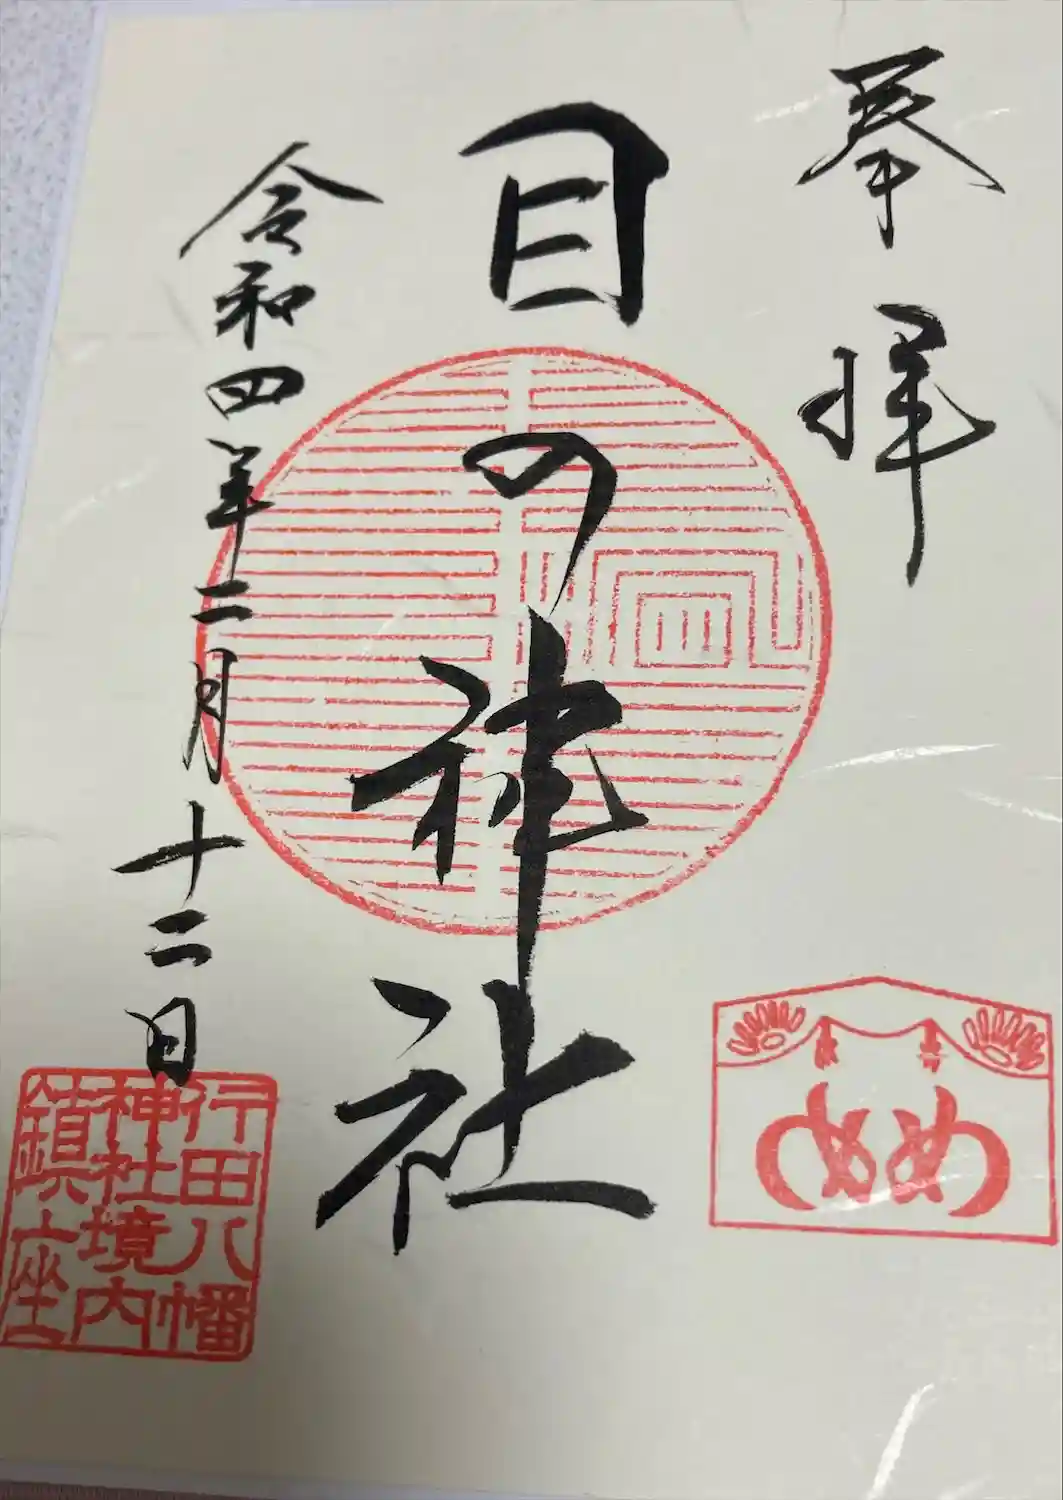 奉拝
目の神社
令和四年二月十二日
行田八幡
神社境内
鎮座
め め